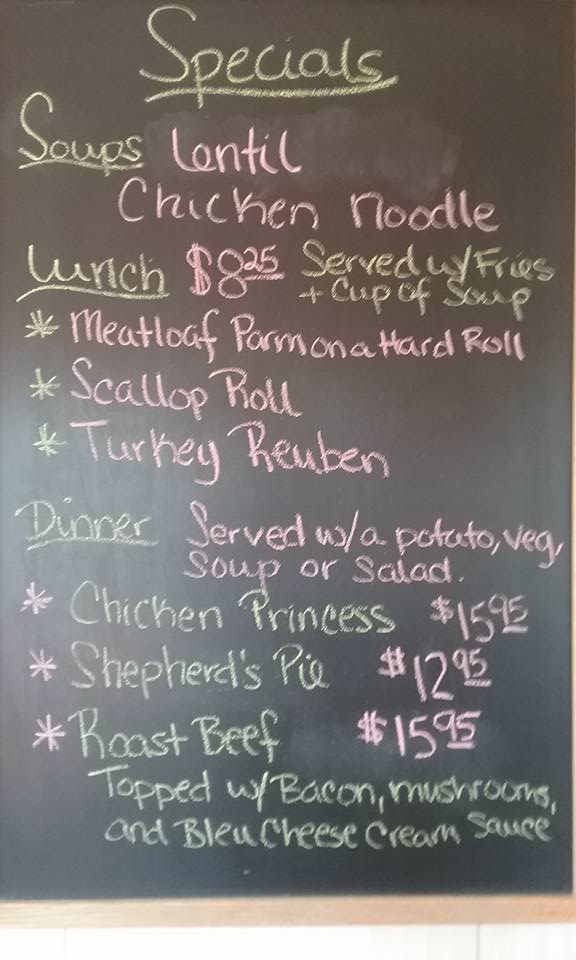 Specials
Soups Lentil
Chicken Noodle
Lunch $8.25 Served w/Fries
+ Cup of Soup
* Meatloaf Parm on a Hard Roll
* Scallop Roll
* Turkey Reuben
Dinner Served w/a potato, veg,
Soup or Salad.
* Chicken Princess $15.95
* Shepherd's Pie $12.95
* Roast Beef $15.95
Topped w/Bacon, mushrooms,
and Bleu Cheese Cream Sauce